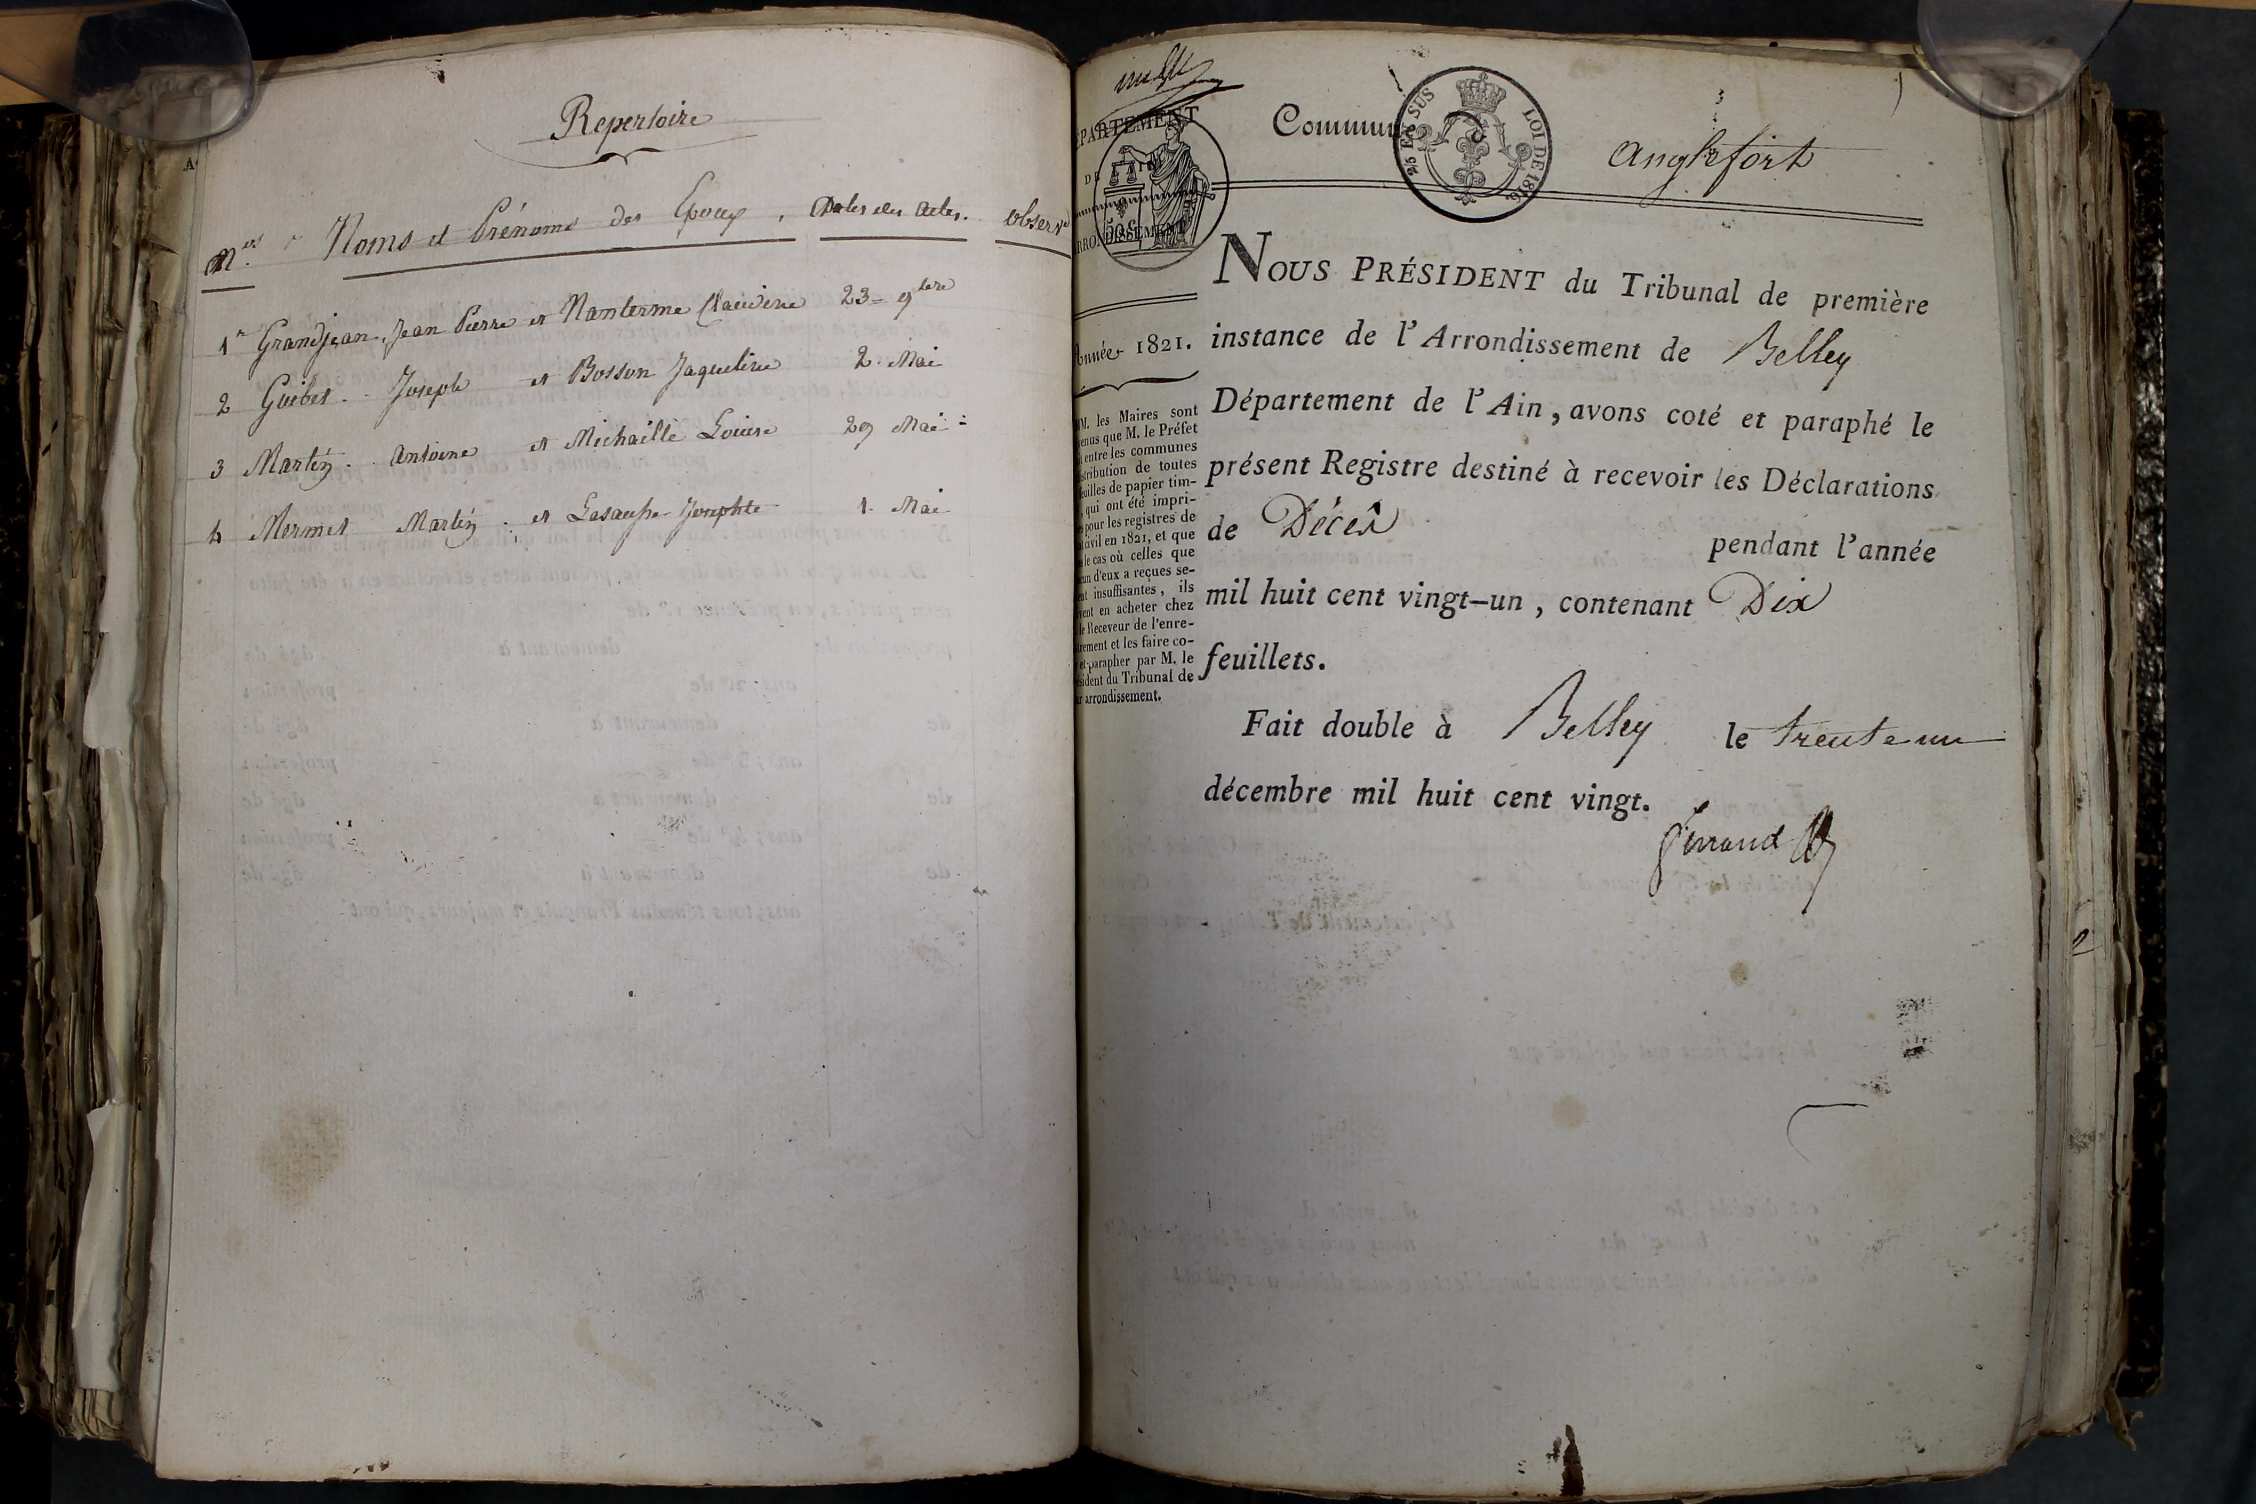 Repertoire
Nos Noms et Prénoms des Epoux, Dates des Actes. observ
1 Grandjean, Jean Pierre et Nanterme Claudine 23 = 9bre
2 Guibet Joseph et Bosson Jaqueline 2. Mai
3 Martin Antoine et Michaille Louise 29 Mai
4 Mermet Martin et Josephte 1. Mai
DÉPARTEMENT
DE
50 C.
ARRONDISSEMENT
Année 1821.
MM. les Maires sont
venus que M. le Préfet
entre les communes
stribution de toutes
feuilles de papier tim-
, qui ont été impri-
pour les registres de
civil en 1821, et que
le cas où celles que
cun d'eux a reçues se-
nt insuffisantes, ils
vent en acheter chez
le Receveur de l'enre-
trement et les faire co-
et parapher par M. le
sident du Tribunal de
r arrondissement.
Commune Anglefort
EN SUS LOI DE 1816
NOUS PRÉSIDENT du Tribunal de première
instance de l'Arrondissement de Belley
Département de l'Ain, avons coté et paraphé le
présent Registre destiné à recevoir les Déclarations
de Décès pendant l'année
mil huit cent vingt-un, contenant Dix
feuillets.
Fait double à Belley le trente un
décembre mil huit cent vingt.